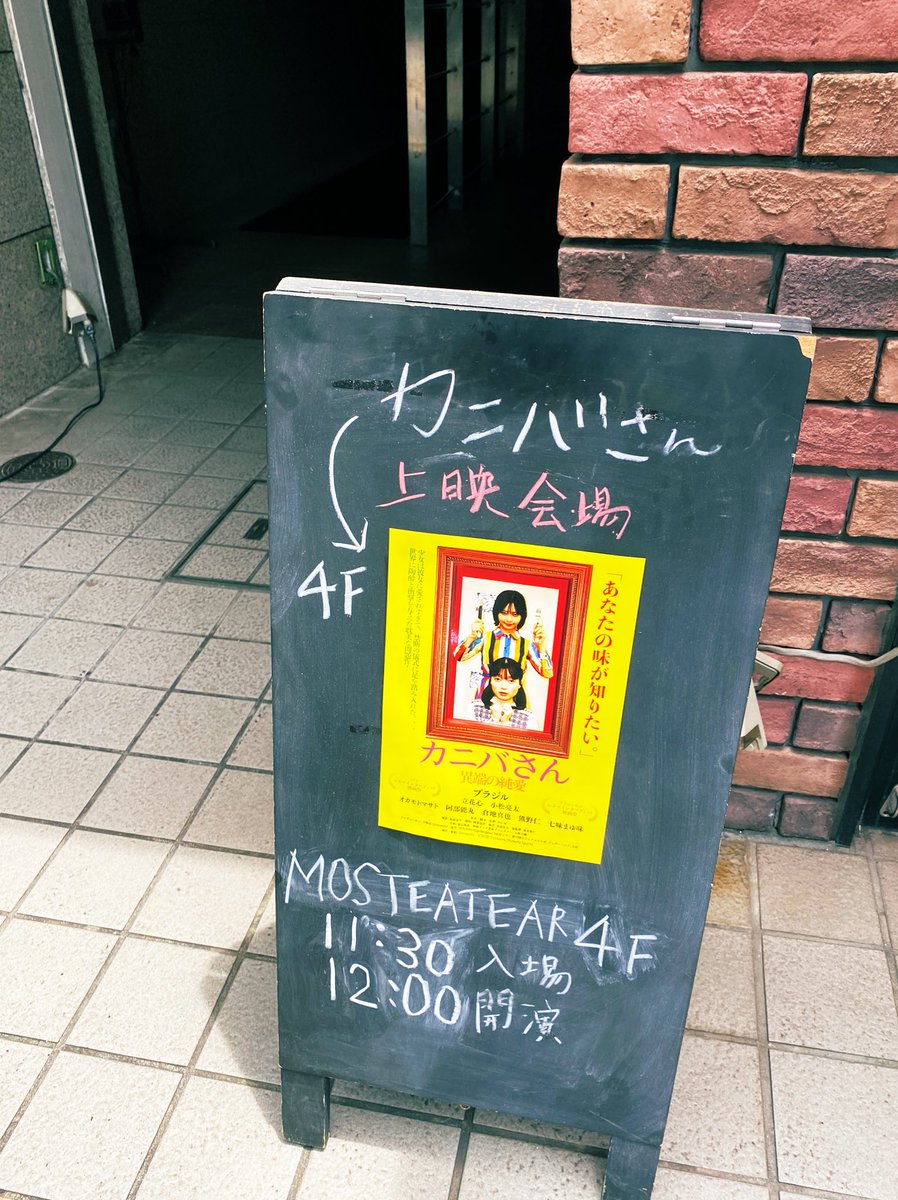 カニバさん
上映会場
4F
「あなたの味が知りたい。」
カニバさん
異端の純愛
ブラジル
立花心 小松亮太
オカモトマサト 阿部能丸 倉地真也 熊野仁 七味まゆ味
MOSTEATEAR 4F
11:30 入場
12:00 開演